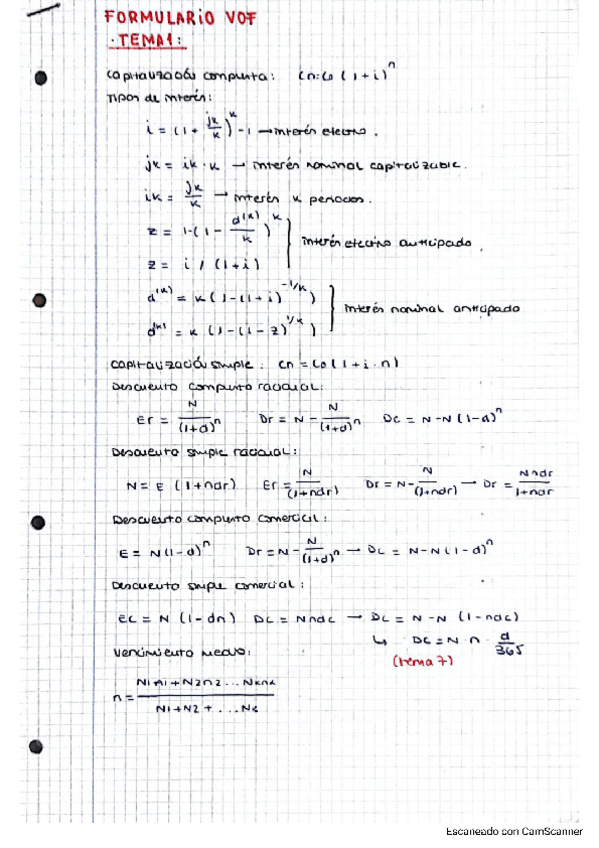 FORMULARIO VOF
·TEMA1:
capitalización compuesta: Cn=Co(1+i)^n
Tipos de interés:
i = (1+ jk/k)^k -1 → interés efectivo.
jk = ik·k → interés nominal capitalizable.
ik = jk/k → interés k periodos.
z = 1-(1- d^(k)/k)^k
z = i / (1+i)
interés efectivo anticipado.
d^(k) = k(1-(1+i)^-1/k)
d^(k) = k (1-(1-z)^1/k)
interés nominal anticipado
capitalización simple: Cn = Co(1+i·n)
Descuento compuesto racional:
Er = N/(1+d)^n Dr = N - N/(1+d)^n Dc = N-N(1-d)^n
Descuento simple racional:
N = E (1+ndr) Er = N/(1+ndr) Dr = N- N/(1+ndr) → Dr = Nndr/1+ndr
Descuento compuesto comercial:
E = N(1-d)^n Dr = N- N/(1+d)^n → Dc = N-N(1-d)^n
Descuento simple comercial:
Ec = N (1-dn) Dc = Nndc → Dc = N-N (1-ndc)
↳ Dc = N n · d/365
(tema 7)
Vencimiento medio:
n = N1n1+N2n2...Nknk/N1+N2+...Nk
Escaneado con CamScanner